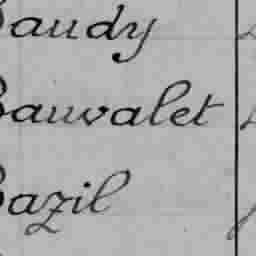 Baudy
Bauvalet
Bazil